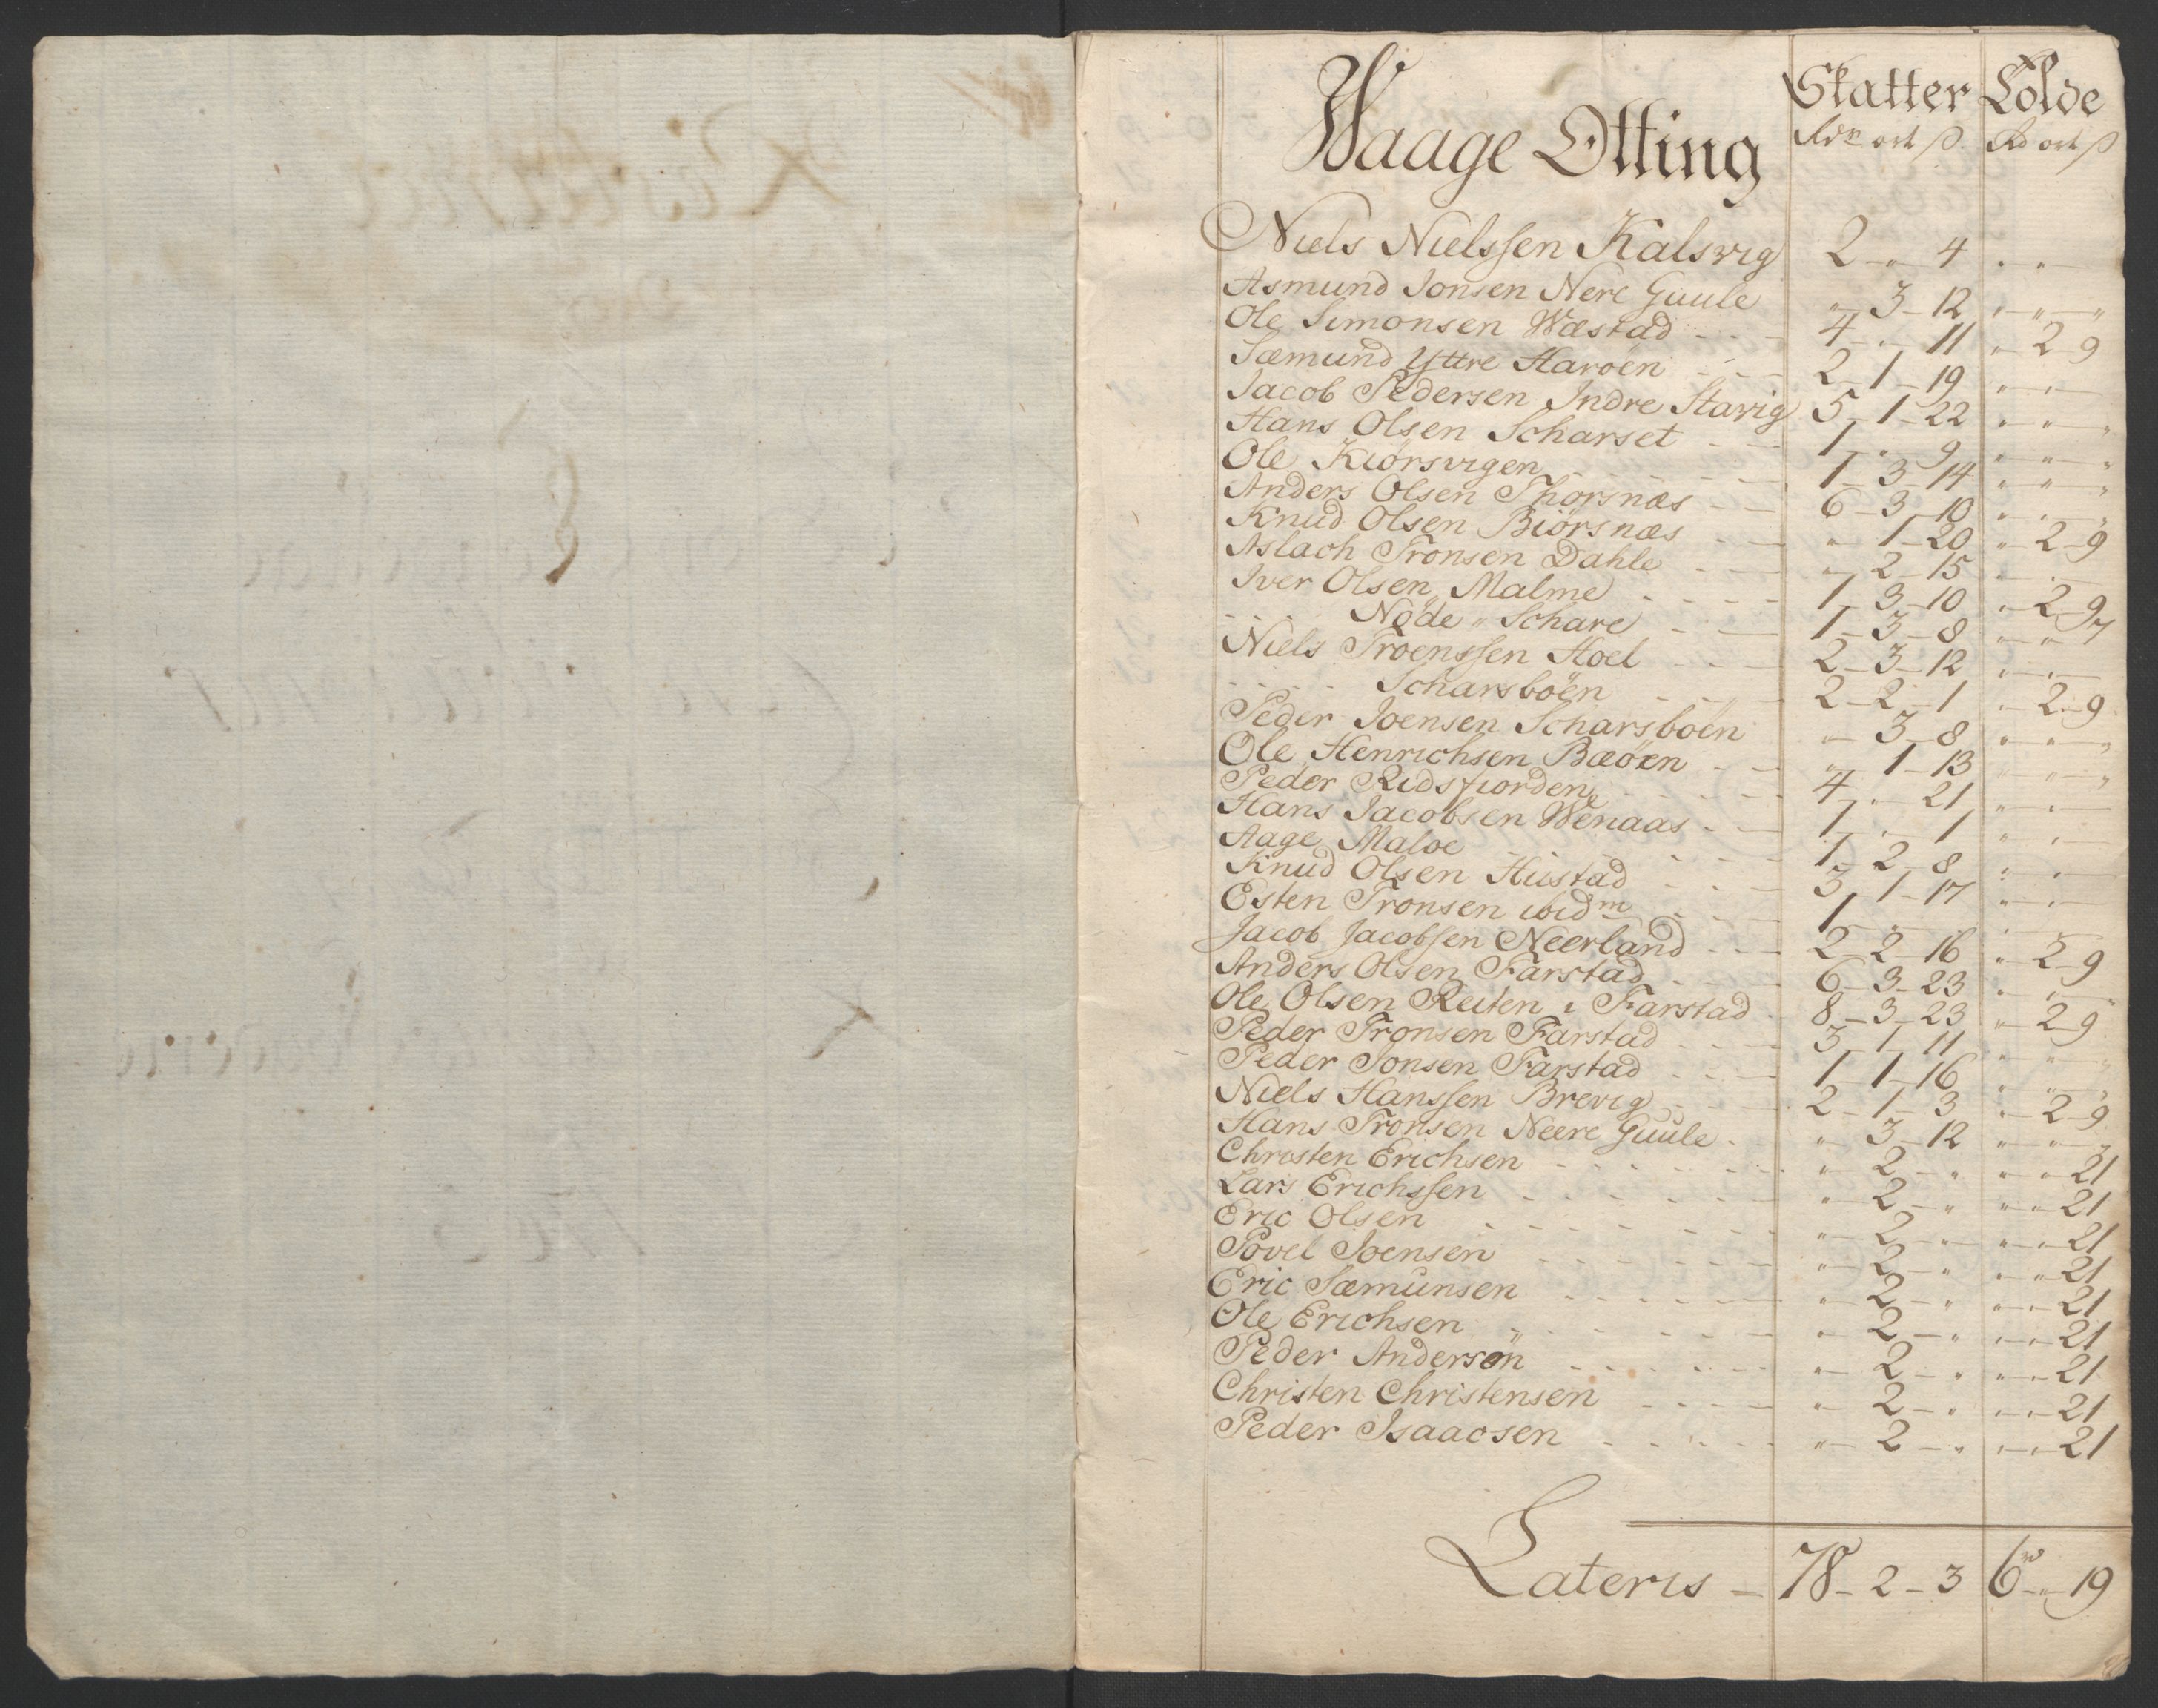 Skatter Tolde
Waage Otting Rdr ort ß. Rd ort ß
Niels Nielssen Kalsvig 2 - " - 4 " "
Asmund Jonsen Nere Guule " - 3 - 12 " " "
Ole Simonsen Wæstad - - - 4 - " - 11 " - 2 - 9
Sæmund Yttre Haröen - - - 2 - 1 - 19 " "
Jacob Pedersen Indre Starig 5 - 1 - 22 " " "
Hans Olsen Scharset - - 1 - " - 9 " " "
Ole Kiörsvigen - - - - 1 - 3 - 14 " " "
Anders Olsen Thorsnæs - - 6 - 3 - 10 " " "
Knud Olsen Biörsnæs - - " - 1 - 20 " - 2 - 9
Aslach Tronsen Dahle - - " - 2 - 15 " "
Iver Olsen Malme - - - - 1 - 3 - 10 " - 2 - 9
- - - Nöde " Schare - - 1 - 3 - 8 " " 7
Niels Troenssen Hoel - - - 2 - 3 - 12 " "
- - - - Scharsböen - - - 2 - 2 - 1 " - 2 - 9
Peder Joensen Scharsböen " - 3 - 8 " " "
Ole Henrichsen Bæöen - - " - 1 - 13 " " "
Peder Ridsfiorden - - - - 4 - " - 21 " "
Hans Jacobsen Wenaas - - 1 - " - 1 " "
Aage Maloe - - - - 1 - 2 - 8 " "
Knud Olsen Hustad - - - 3 - 1 - 17 " "
Esten Tronsen ibidm - - - 1 - " - "
Jacob Jacobsen Neerland - - 2 - 2 - 16 " - 2 - 9
Anders Olsen Farstad - - - 6 - 3 - 23 " " "
Ole Olsen Reiten i Farstad - 8 - 3 - 23 " - 2 - 9
Peder Tronsen Farstad - - - 3 - 1 - 11 " " "
Peder Jonsen Farstad - - - 1 - 1 - 16 " " "
Niels Hanssen Brevig - - - 2 - 1 - 3 " - 2 - 9
Hans Tronsen Neere Guule - " - 3 - 12 " " "
Christen Erichsen - - - - " - 2 - " " " 21
Lars Erichssen - - - - " - 2 - " " " 21
Eric Olsen - - - - " - 2 - " " " 21
Povel Joensen - - - - " - 2 - " " " 21
Eric Sæmunsen - - - - " - 2 - " " " 21
Ole Erichsen - - - - " - 2 - " " " 21
Peder Andersön - - - - " - 2 - " " " 21
Christen Christensen - - - - " - 2 - " " " 21
Peder Isaacsen - - - - " - 2 - " " " 21
Lateris - 78 - 2 - 3 6 - " - 19